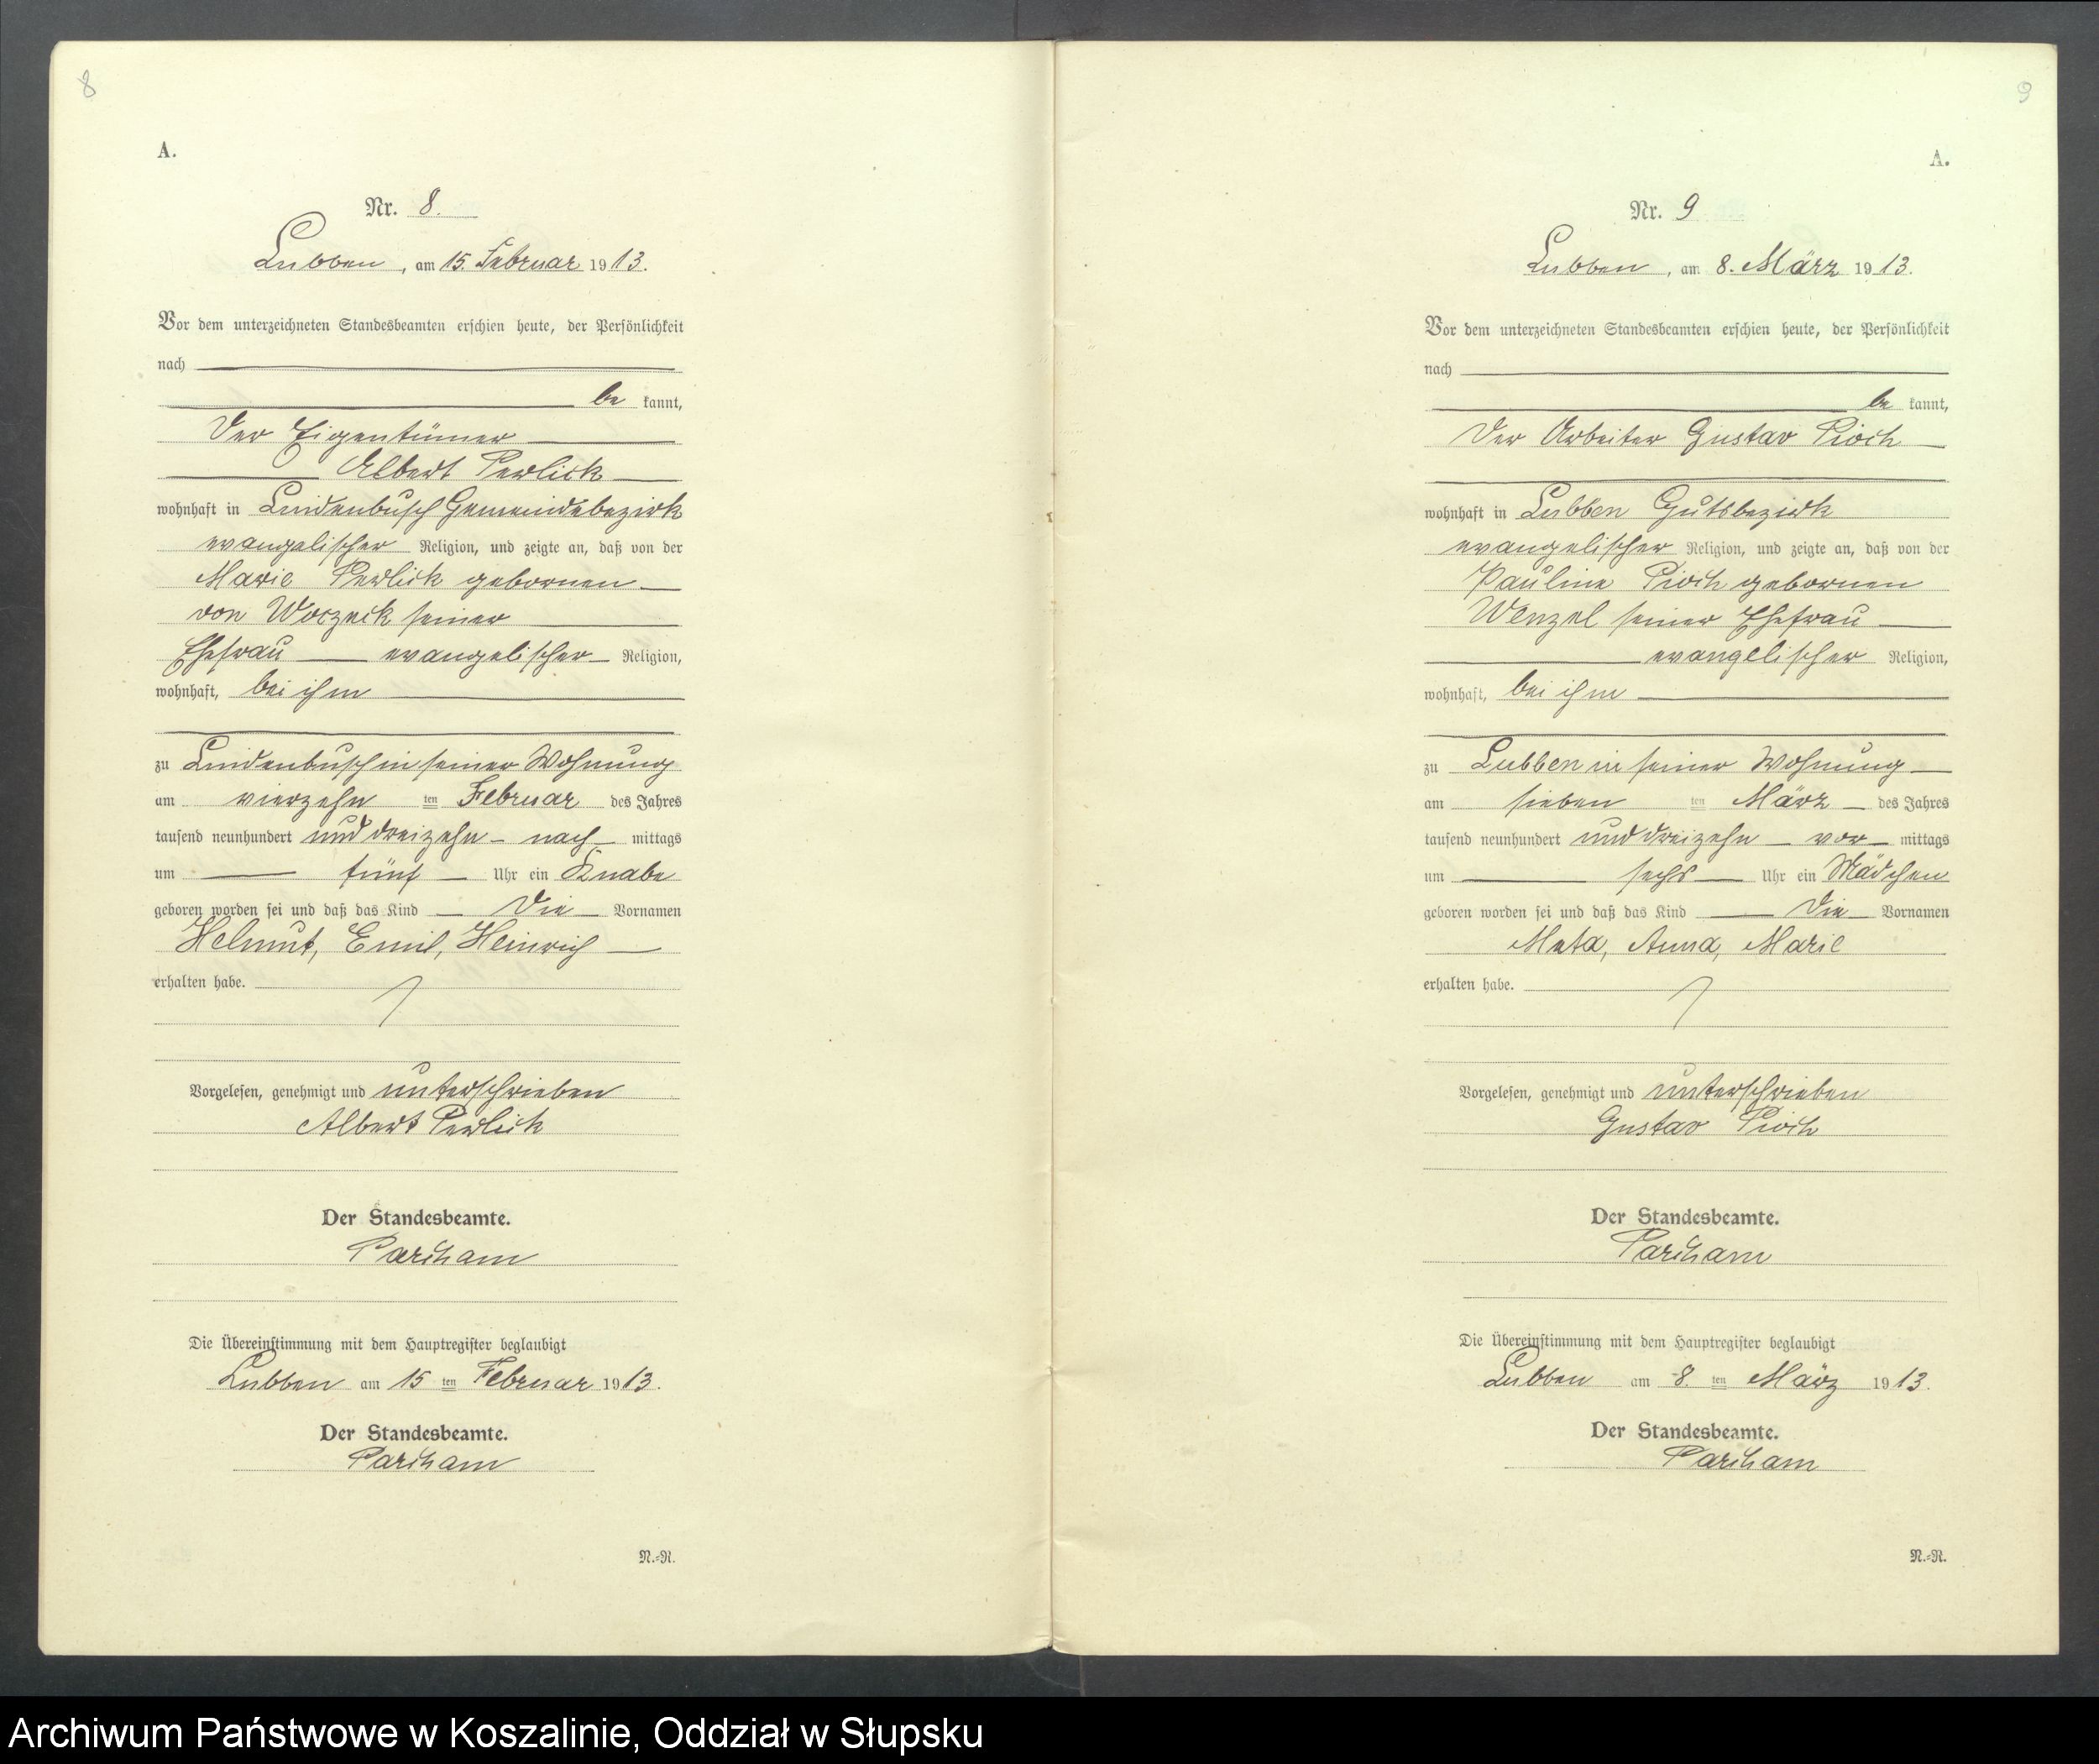 8
A.
Nr. 8.
Lubben, am 15. Februar 1913.
Vor dem unterzeichneten Standesbeamten erschien heute, der Persönlichkeit
nach
be kannt,
der Eigentümer
Albert Perlick
wohnhaft in Lindenbusch Gemeindebezirk
evangelischer Religion, und zeigte an, daß von der
Marie Perlick gebornen
von Worzeck seiner
Ehefrau evangelischer Religion,
wohnhaft, bei ihm
zu Lindenbusch in seiner Wohnung
am vierzehn ten Februar des Jahres
tausend neunhundert und dreizehn nach mittags
um fünf Uhr ein Knabe
geboren worden sei und daß das Kind die Vornamen
Helmut, Emil, Heinrich
erhalten habe.
Vorgelesen, genehmigt und unterschrieben
Albert Perlick
Der Standesbeamte.
Parcham
Die Übereinstimmung mit dem Hauptregister beglaubigt
Lubben am 15 ten Februar 1913.
Der Standesbeamte.
Parcham
N.-R.
9
A.
Nr. 9
Lubben, am 8. März 1913.
Vor dem unterzeichneten Standesbeamten erschien heute, der Persönlichkeit
nach
be kannt,
der Arbeiter Gustav Pioch
wohnhaft in Lubben Gutsbezirk
evangelischer Religion, und zeigte an, daß von der
Pauline Pioch gebornen
Wenzel seiner Ehefrau
evangelischer Religion,
wohnhaft, bei ihm
zu Lubben in seiner Wohnung
am sieben ten März des Jahres
tausend neunhundert und dreizehn vor mittags
um sechs Uhr ein Mädchen
geboren worden sei und daß das Kind die Vornamen
Meta, Anna, Marie
erhalten habe.
Vorgelesen, genehmigt und unterschrieben
Gustav Pioch
Der Standesbeamte.
Parcham
Die Übereinstimmung mit dem Hauptregister beglaubigt
Lubben am 8. ten März 1913.
Der Standesbeamte.
Parcham
N.-R.
Archiwum Państwowe w Koszalinie, Oddział w Słupsku